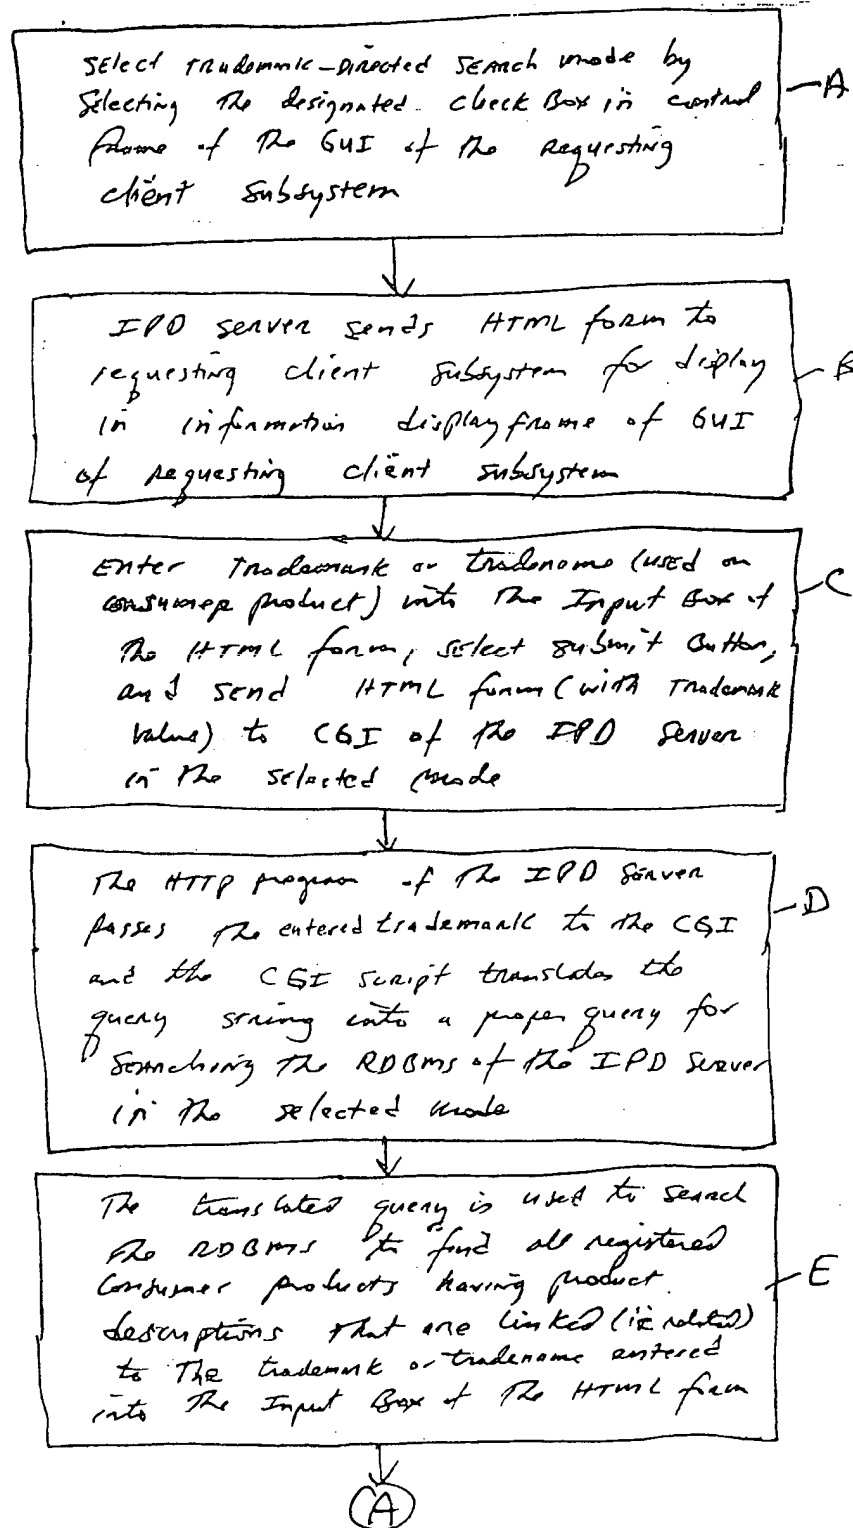 Select Trademark-Directed Search mode by
Selecting the designated check Box in control
frame of the GUI of the requesting
client Subsystem
A
IPD server sends HTML form to
requesting client subsystem for display
in information display frame of GUI
of requesting client subsystem
B
Enter Trademark or tradename (used on
consumer product) into the Input Box of
the HTML form, select submit Button,
and send HTML form (with Trademark
value) to CGI of the IPD Server
in the selected mode
C
The HTTP program of the IPD Server
passes the entered trademark to the CGI
and the CGI script translates the
query string into a proper query for
Searching the RDBMS of the IPD Server
in the selected mode
D
The translated query is used to search
the RDBMS to find all registered
Consumer products having product
descriptions that are linked (ie related)
to The trademark or tradename entered
into The Input Box of The HTML form
E
A